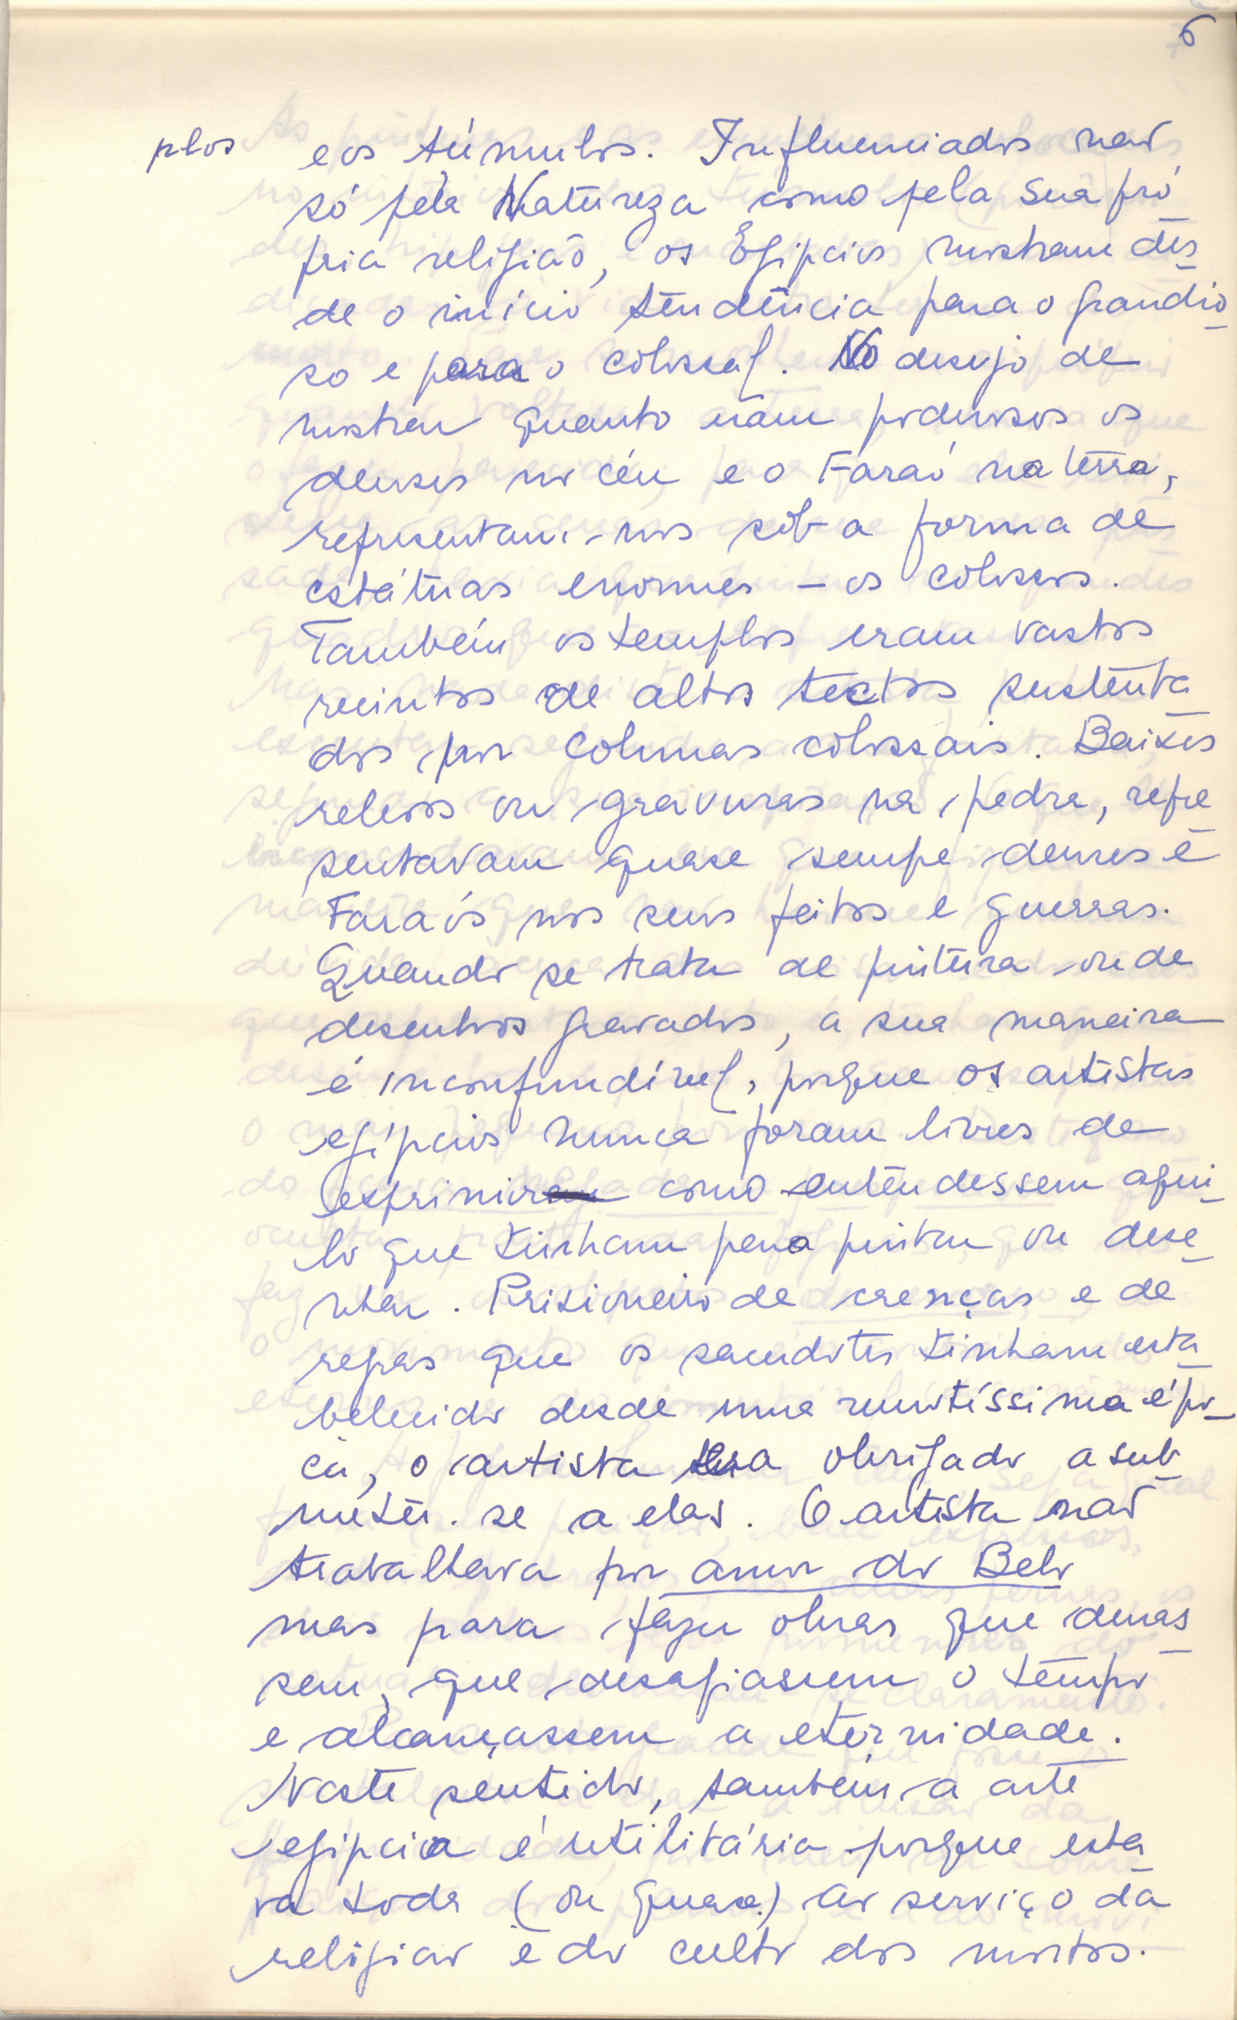 6
plos e os túmulos. Influenciados não
só pela Natureza como pela sua pró
pria religião, os Egípcios mostram des
de o início tendência para o grandio
so e para o colossal. No desejo de
mostrar quanto eram poderosos os
deuses no céu e o Faraó na terra,
representam-nos sob a forma de
estátuas enormes – os colossos.
Também os templos eram vastos
recintos de altos tectos sustenta
dos por colunas colossais. Baixos
relevos ou gravuras na pedra, repre
sentavam quase sempe deuses e
Faraós nos seus feitos e guerras.
Quando se trata de pintura ou de
desenhos gravados, a sua maneira
é inconfundível, porque os artistas
egípcios nunca foram livres de
exprimir como entendessem aqui
lo que tinham para pintar ou dese
nhar. Prisioneiro de crenças e de
regras que os sacerdotes tinham esta
belecido desde uma remotíssima épo
ca, o artista era obrigado a sub
meter-se a elas. O artista não
trabalhava por amor do Belo
mas para fazer obras que duras
sem, que desafiassem o tempo
e alcançassem a eternidade.
Neste sentido, também a arte
egípcia é utilitária porque esta
va toda (ou quase) ao serviço da
religião e do culto dos mortos.